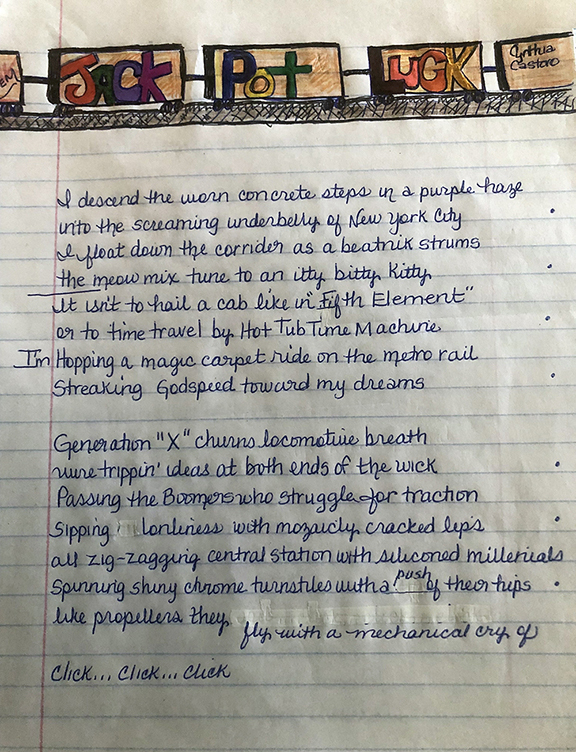 EM JACK POT LUCK Cynthia Castoro
I descend the worn concrete steps in a purple haze
into the screaming underbelly of New York City
I float down the corrider as a beatnik strums
the meow mix tune to an itty bitty kitty.
It isn't to hail a cab like in "Fifth Element"
or to time travel by Hot Tub Time Machine
I'm Hopping a magic carpet ride on the metro rail
Streaking Godspeed toward my dreams
Generation "X" churns locomotive breath
we're trippin' ideas at both ends of the wick
Passing the Boomers who struggle for traction
Sipping lonliness with mozaicly cracked lips
all zig-zagging central station with siliconed millenials
Spinning shiny chrome turnstiles with a push of their hips
like propellers they fly with a mechanical cry of
Click... Click... Click